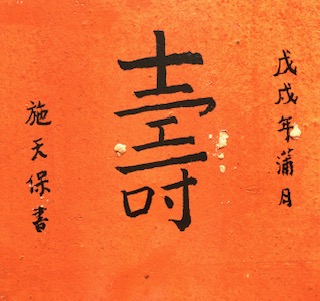 戊戌年蒲月
壽
施天保書